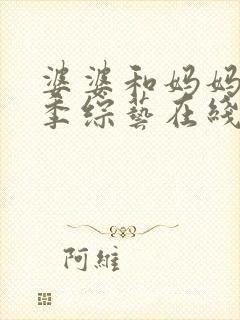 婆婆和妈妈
季综藝在綫
阿維